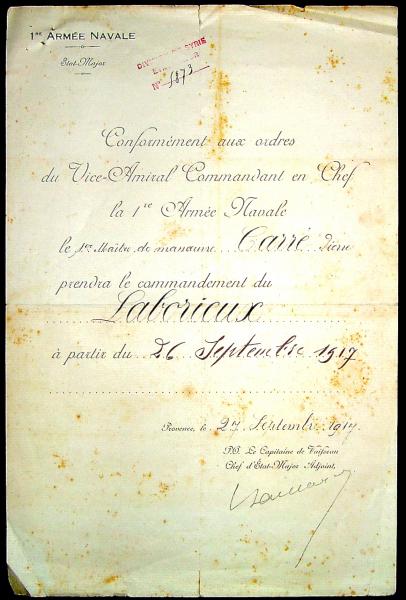 1re ARMÉE NAVALE
État-Major
DIVISION DE SYRIE
ÉTAT-MAJOR
N° 1873
Conformément aux ordres
du Vice-Amiral Commandant en Chef
la 1re Armée Navale
le 1er Maître de manœuvre Carré Pierre
prendra le commandement du
Laborieux
à partir du 26 Septembre 1917
Provence, le 27 Septembre 1917
P.O. Le Capitaine de Vaisseau
Chef d'État-Major Adjoint,